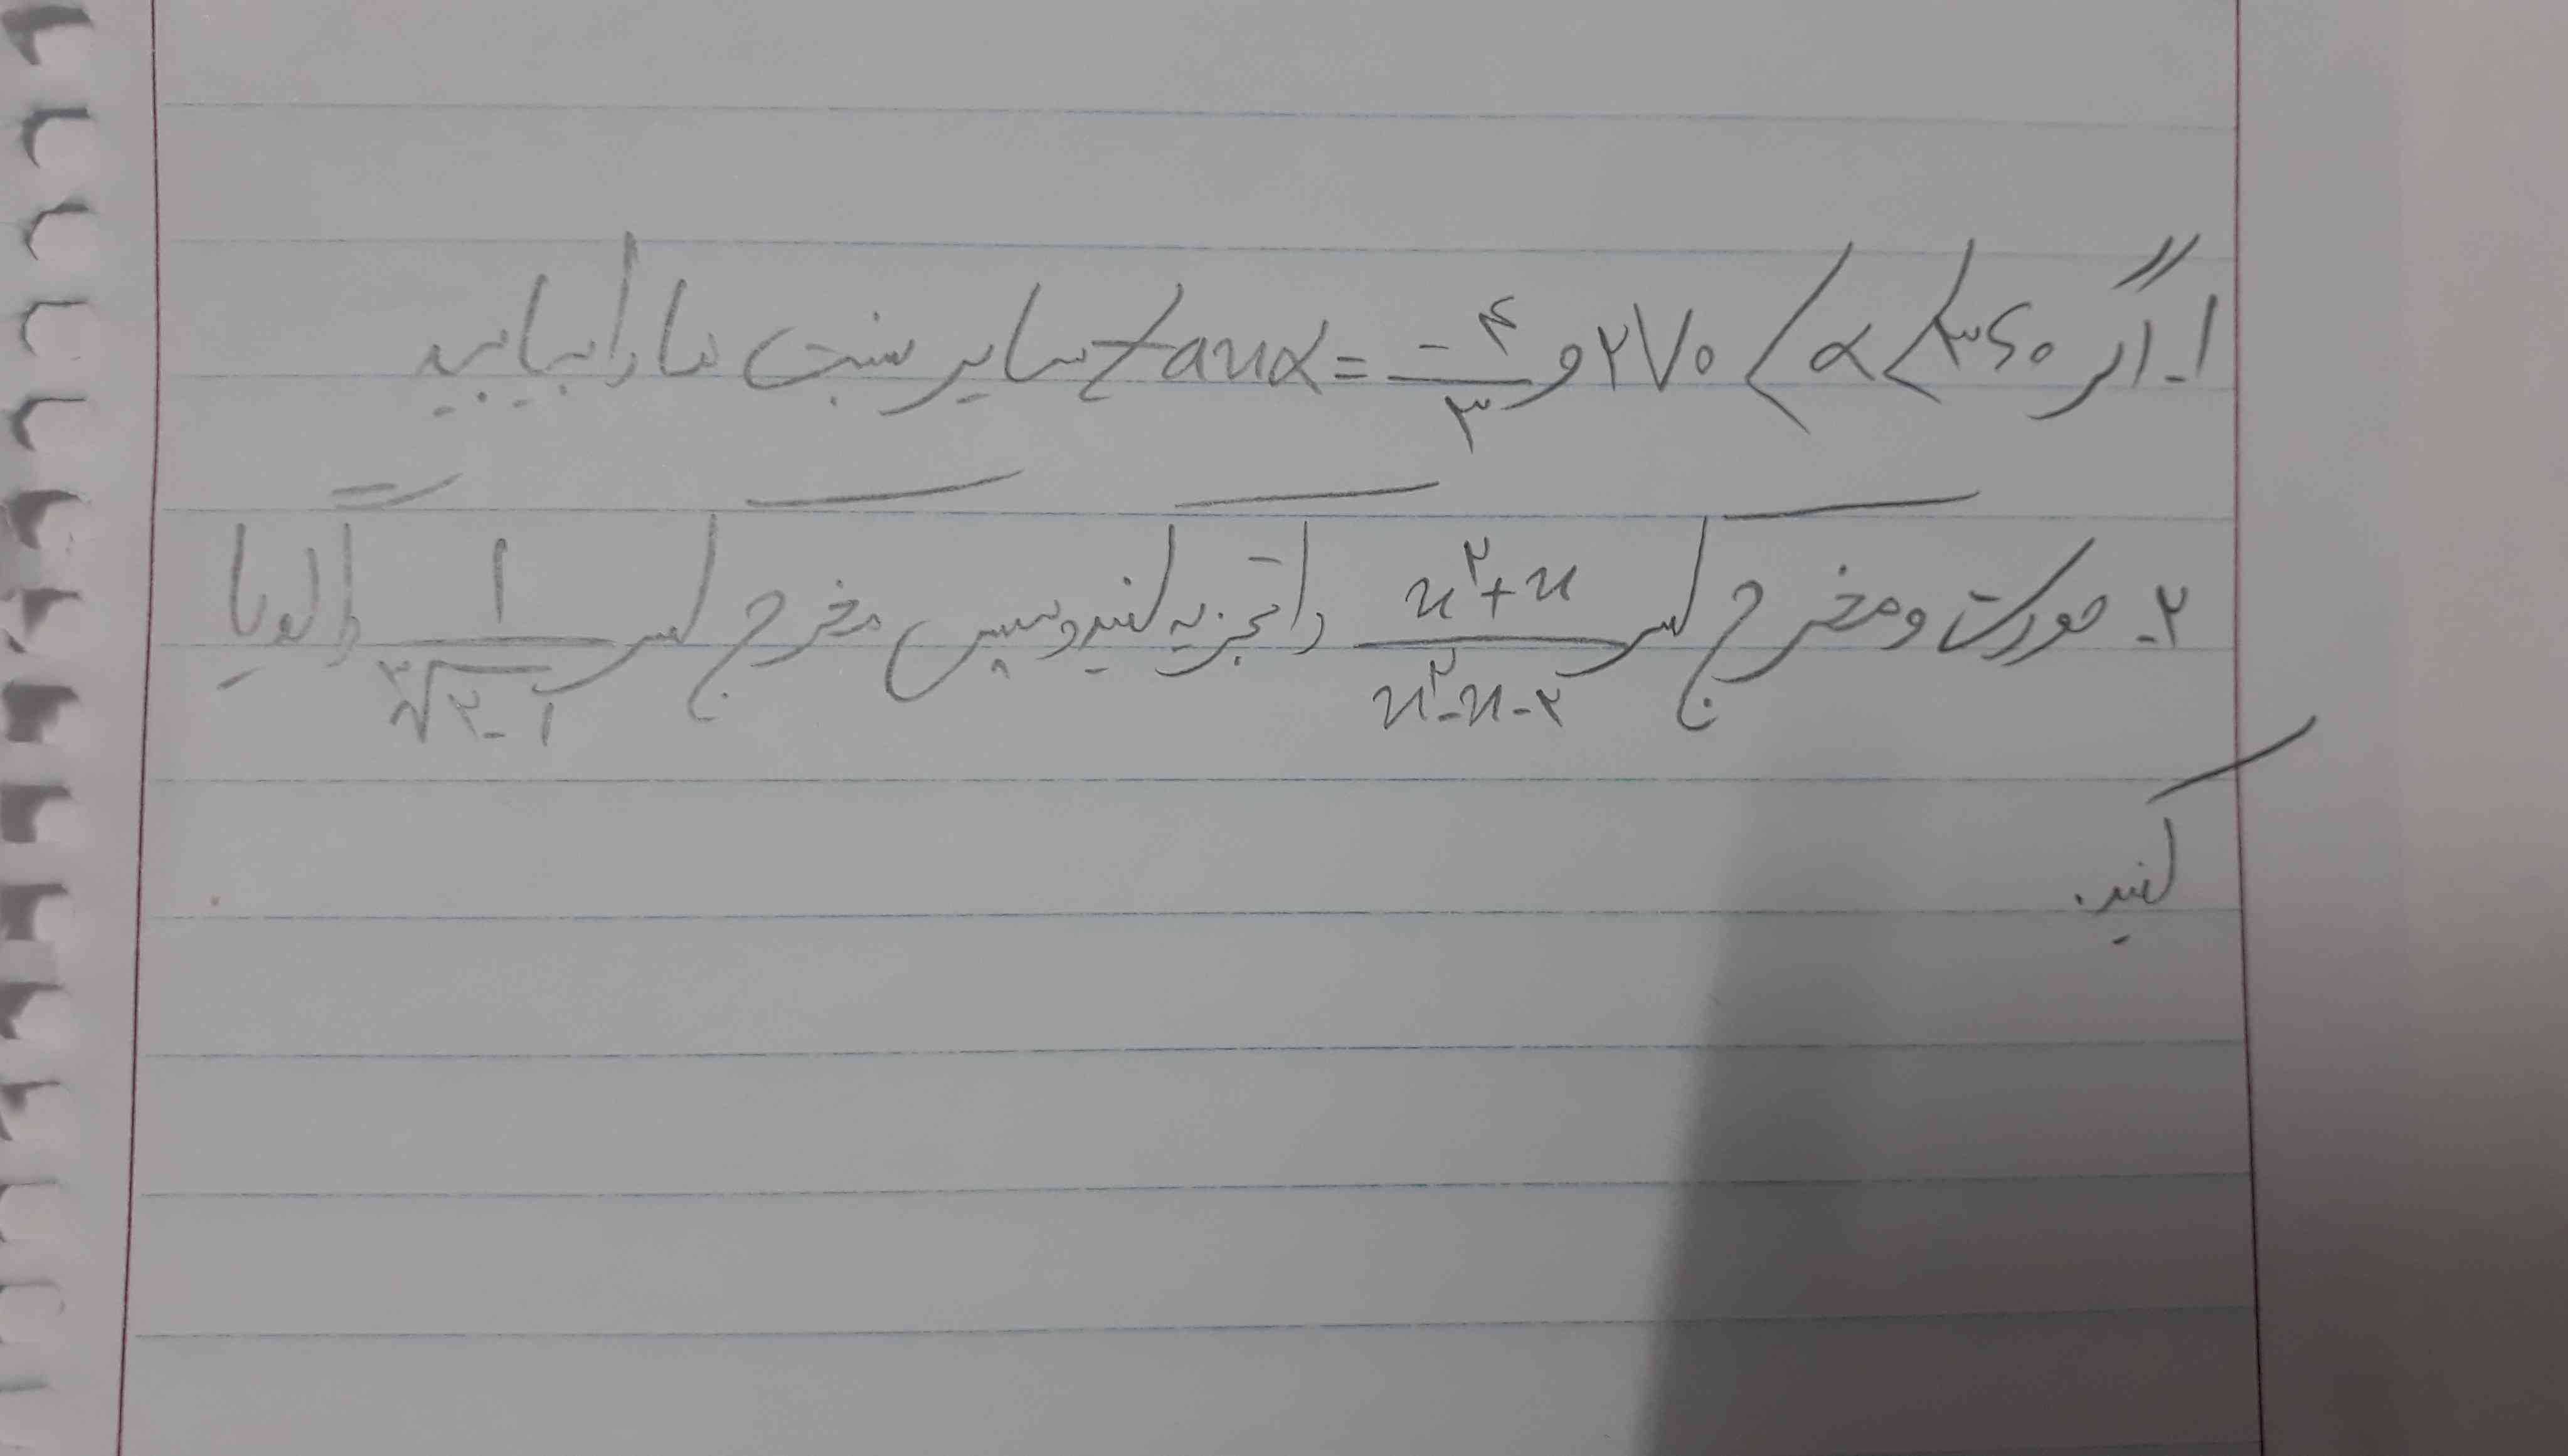 ۱- اگر ۲۷۰ < α < ۳۶۰ و tanα = -۴/۳ سایر نسبت ها را بیابید
۲- صورت و مخرج کسر (x^۲+x)/(x^۲-x-۲) را تجزیه کنید و سپس مخرج کسر ۱/(∛۲-۱) را گویا
کنید.